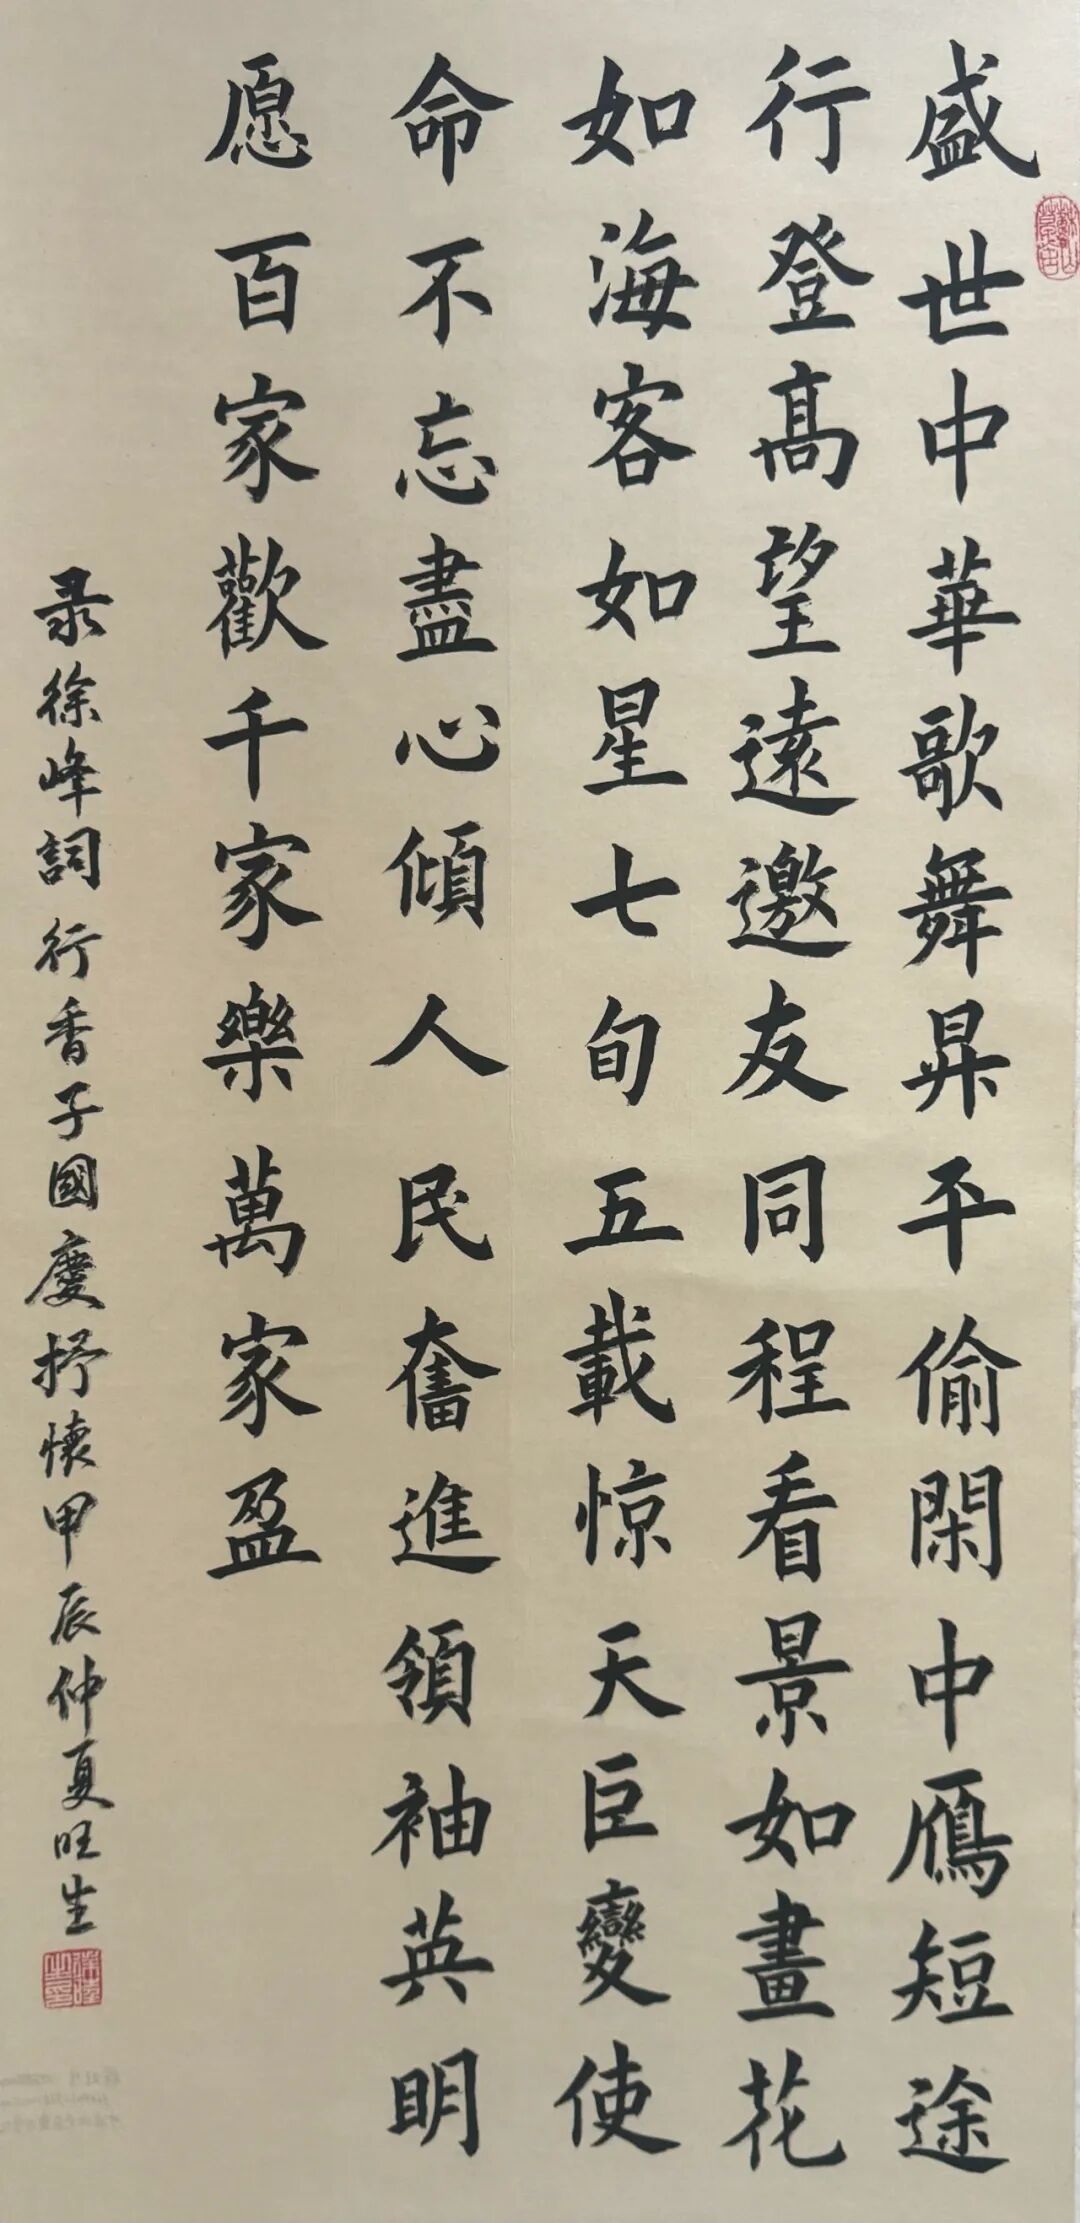 盛世中華歌舞昇平偷閑中鴈短途
行登高望遠邀友同程看景如畫花
如海客如星七旬五載惊天巨變使
命不忘盡心傾人民奮進領袖英明
愿百家歡千家樂萬家盈
录徐峰詞行香子國慶抒懷甲辰仲夏旺生